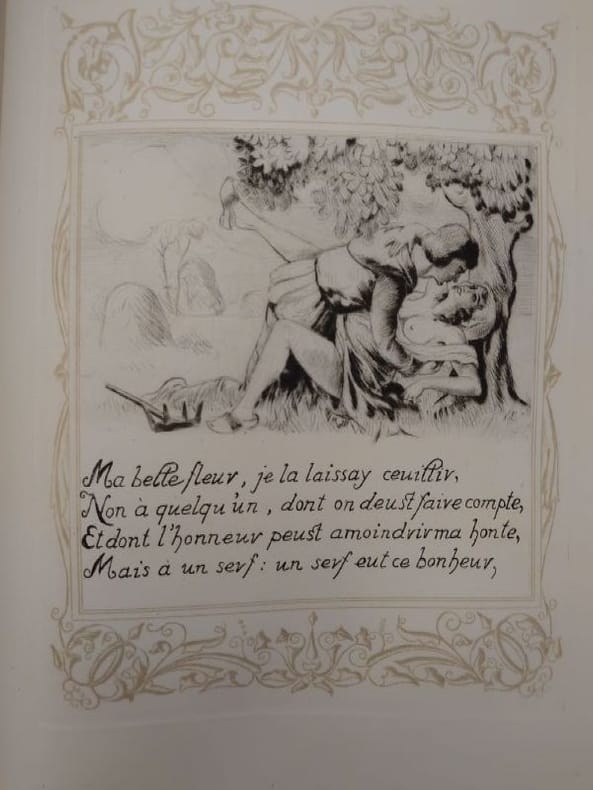 Ma belle fleur, je la laissay ceuillir,
Non à quelqu'un, dont on deust faire compte,
Et dont l'honneur peust amoindrir ma honte,
Mais à un serf: un serf eut ce bonheur,